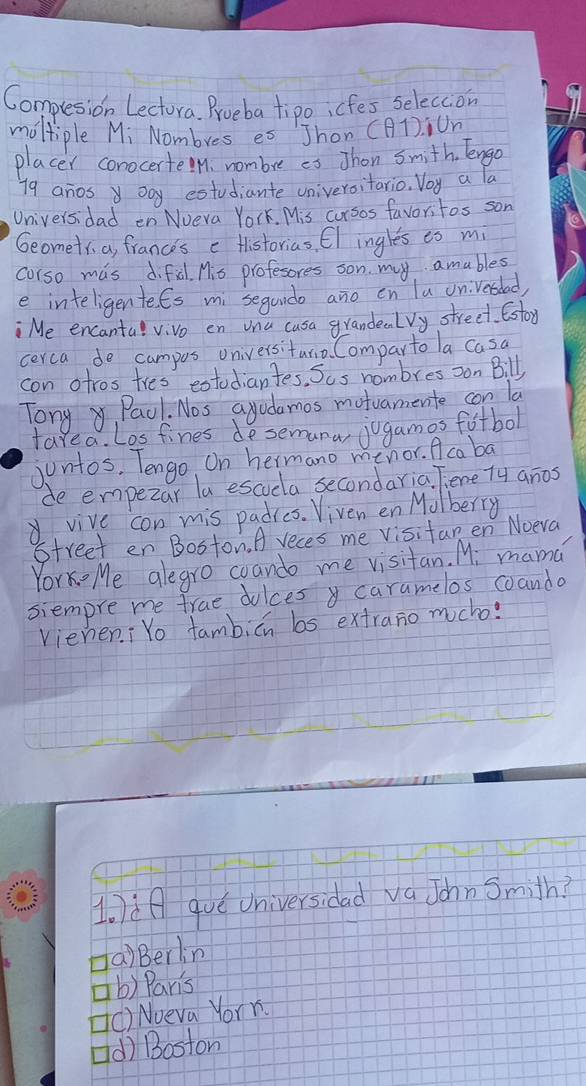 Compresión Lectura. Prueba tipo icfes selección
múltiple Mi Nombres es Jhon (A1)¡Un
placer conocerte! Mi nombre es Jhon Smith. Tengo
19 años y soy estudiante universitario. Voy a la
Universidad en Nueva York. Mis cursos favoritos son
Geometría, francés e Historias. El inglés es mi
curso más difíil. Mis profesores son. muy amables
e inteligente. Es mi segundo año en la universidad,
¡Me encanta! vivo en una casa grande en Ivy street. Estoy
cerca de campos universitario. Comparto la casa
con otros tres estudiantes. Sus nombres son Bill,
Tony y Paul. Nos ayudamos mutuamente con la
tarea. Los fines de semana, jugamos fútbol
juntos. Tengo Un hermano menor. Acaba
de empezar la escuela secondaria. Tiene 14 años
y vive con mis padres. Viven en Mulberry
Street en Boston. A veces me visitan en Nueva
York. Me alegro cuando me visitan. Mi mamá
siempre me trae dulces y caramelos cuando
vienen. ¡Yo también los extraño mucho!
1.) ¿A qué Universidad va John Smith?
a) Berlin
b) París
c) Nueva Yorn.
d) Boston